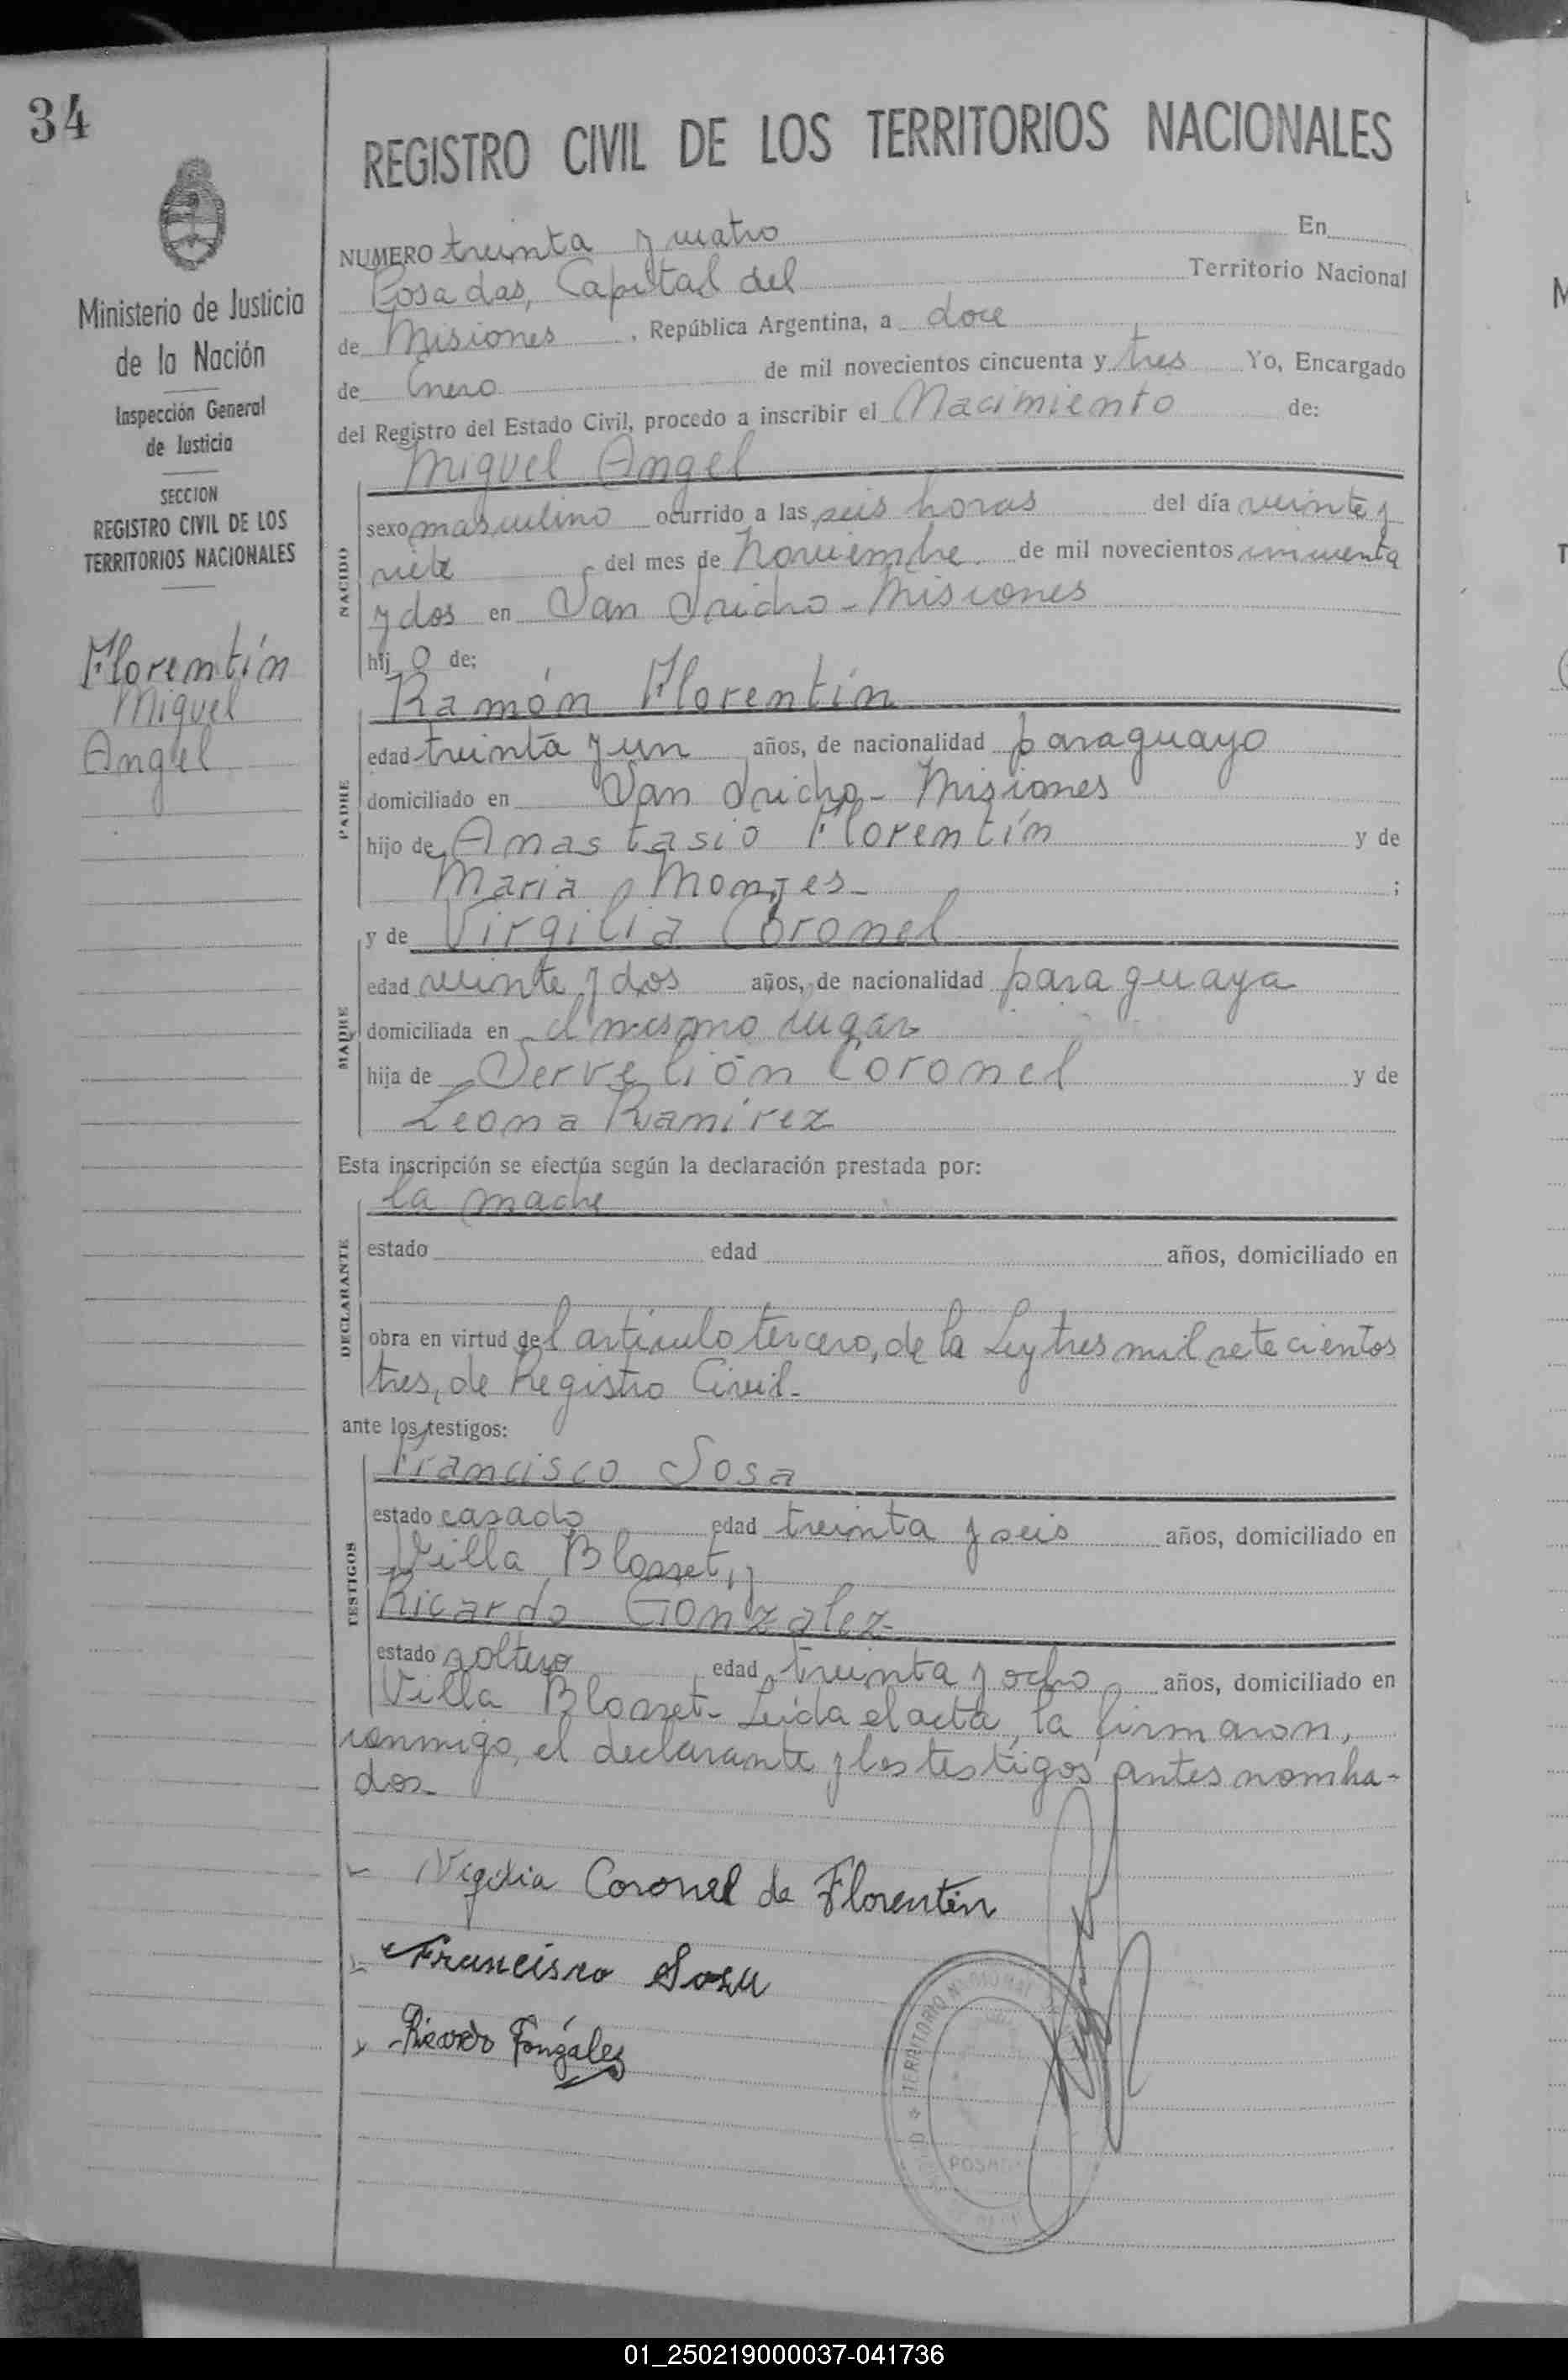 34
REGISTRO CIVIL DE LOS TERRITORIOS NACIONALES
Ministerio de Justicia
de la Nación
Inspección General
de Justicia
SECCION
REGISTRO CIVIL DE LOS
TERRITORIOS NACIONALES
Florentín
Miguel
Angel
NUMERO treinta y cuatro En
Posadas, Capital del Territorio Nacional
de Misiones, República Argentina, a doce
de Enero de mil novecientos cincuenta y tres Yo, Encargado
del Registro del Estado Civil, procedo a inscribir el Nacimiento de:
Miguel Angel
NACIDO
sexo masculino ocurrido a las seis horas del día veinte y
siete del mes de Noviembre de mil novecientos cincuenta
y dos en San Isidro - Misiones
hij o de:
Ramón Florentín
PADRE
edad treinta y un años, de nacionalidad paraguayo
domiciliado en San Isidro - Misiones
hijo de Anastasio Florentín y de
Maria Monges - ;
y de Virgilia Coronel
MADRE
edad veinte y dos años, de nacionalidad paraguaya
domiciliada en el mismo lugar
hija de Servelión Coronel y de
Leona Ramírez
Esta inscripción se efectúa según la declaración prestada por:
la madre
DECLARANTE
estado edad años, domiciliado en
obra en virtud del artículo tercero, de la Ley tres mil setecientos
tres, de Registro Civil -
ante los testigos:
Francisco Sosa
TESTIGOS
estado casado edad treinta y seis años, domiciliado en
Villa Blosset, y
Ricardo Gonzalez -
estado soltero edad treinta y ocho años, domiciliado en
Villa Blosset - Leída el acta, la firmaron,
conmigo, el declarante y los testigos antes nombra-
dos -
Virgilia Coronel de Florentin
Francisco Sosa
Ricardo Gonzalez
TERRITORIO NACIONAL
POSADAS
01_250219000037-041736